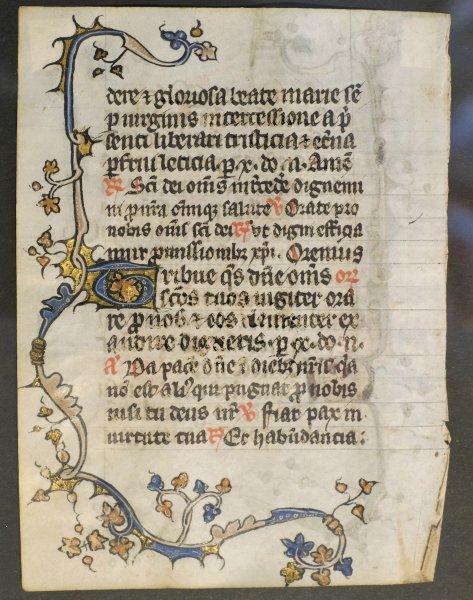 dere & gloriosa beate marie sē
p uirginis intercessione a p̄
senti liberari tristicia & et̄na
ꝑfrui leticia ꝑ x̄. do. n. Amē
R̄ Sc̄i dei om̄s int̄ced̄e dignemi
ni ꝓ nr̄a om̄iq̄ salute V Orate pro
nobis om̄s sc̄i dei R̄ Vt digni efficia
mur ꝓmissionibꝫ xp̄i. Oremus
Tribue q̄s dn̄e om̄s or̄
sc̄os tuos iugiter ora
re ꝓ nob̄ & eos clementer ex
audire digneris. ꝑ x̄. do. n.
A Da pacē dn̄e ī diebꝫ nr̄is q̄a
nō est aliꝰ qui pugnat ꝓ nobis
nisi tu deus nr̄ V Fiat pax in
uirtute tua R̄ Et habūdancia :